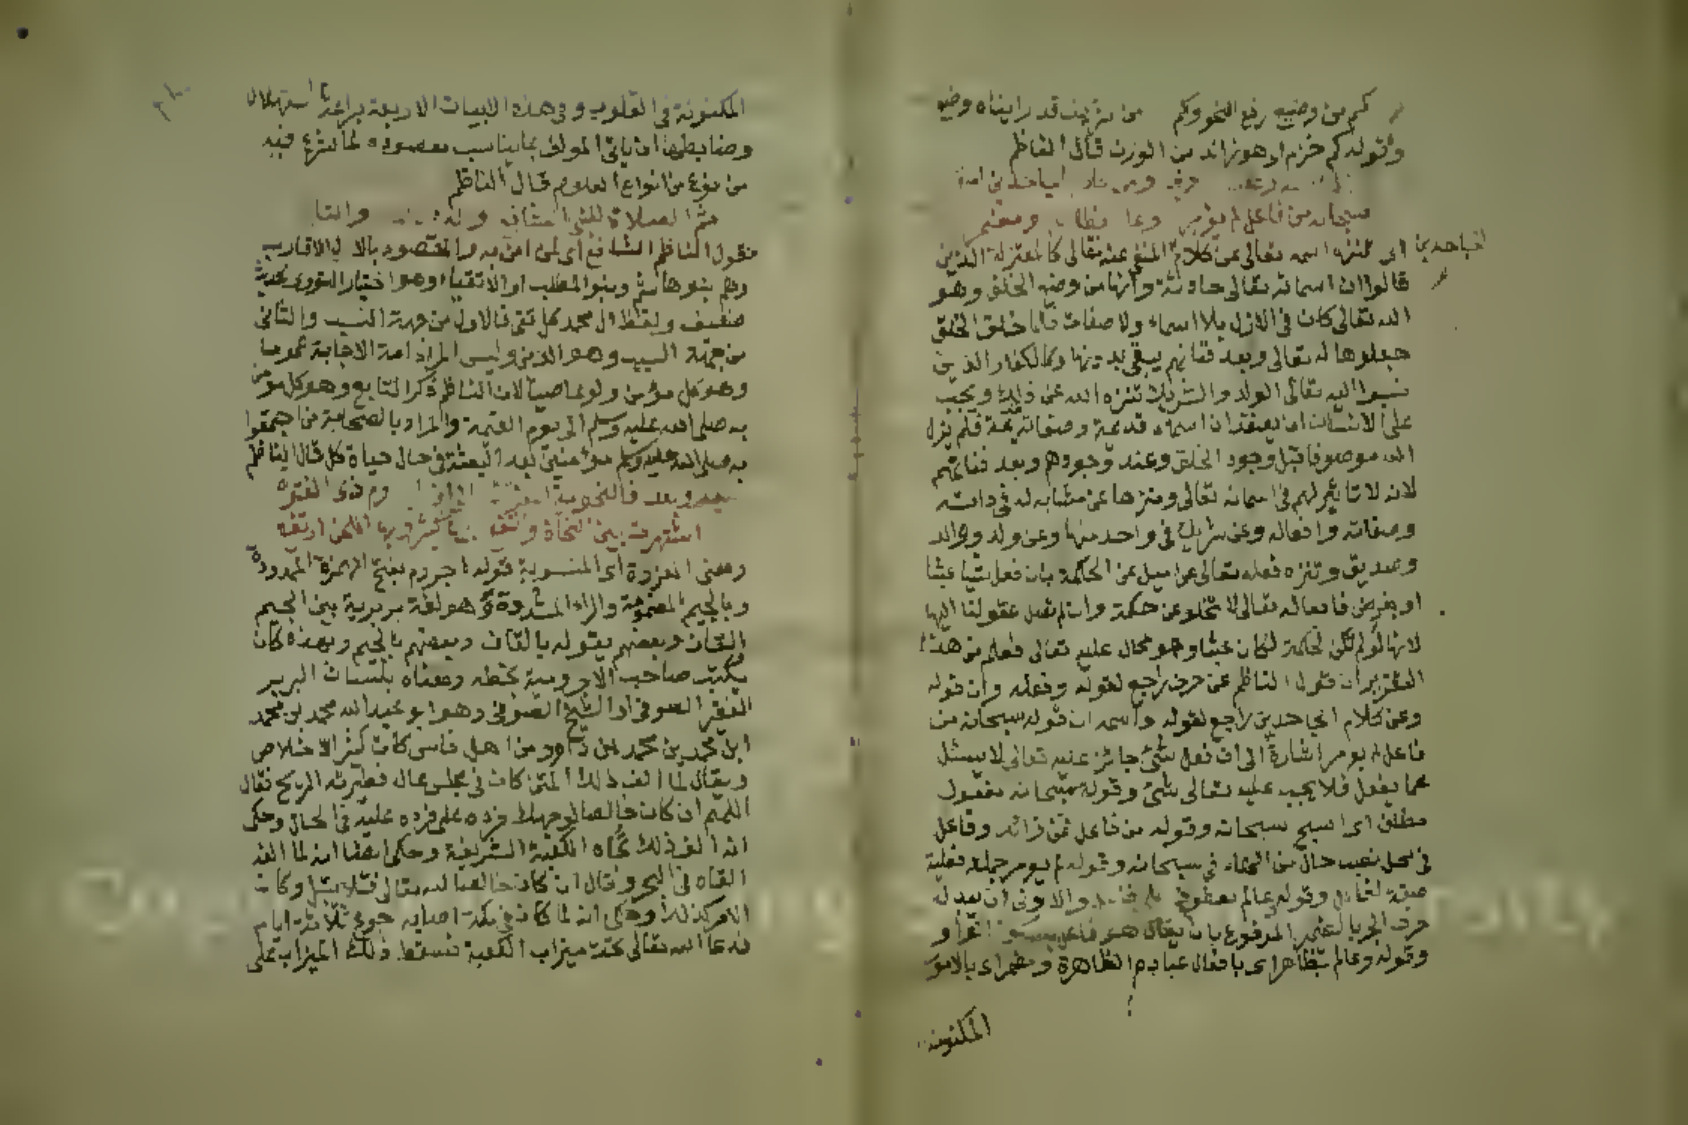 كم من وضيع رفع النحو وكم من شريف قد رايناه وضيع
وقوله كم خرم اذ هو زائد من الوزن قال الناظم
سبحانه من فاعل لم يؤمر وعا بظاهر ومضمر
اى تنزه اسمه تعالى عن كلام المنفى عنه تعالى كالمعتزلة الذين
الجاحدين
قالوا ان اسمائه تعالى حادثة وانها من وضع الخلق وهو
الله تعالى كان فى الازل بلا اسماء ولا صفات فلما خلق الخلق
جعلوها له تعالى وبعد فنائهم يبقى بدونها وكالكفار الذين
نسبوا اليه تعالى الولد والشريك تنزه الله عن ذلك ويجب
على الانسان ان يعتقد ان اسماءه قديمة وصفاته قديمة فلم يزل
الله موصوفا قبل وجود الخلق وعند وجودهم وبعد فنائهم
لانه لا تاثير لهم فى اسمائه تعالى ومنزها عن مشابه له فى ذاته
وصفاته وافعاله وعن شريك فى واحد منها وعن ولد ووالد
وصديق وتنزه فعله تعالى عن اميل عن الحكمة بان فعل شيا عبثا
او بغرض فافعاله تعالى لا تخلو عن حكمة وان لم تصل عقولنا اليها
لانها لو لم تكن لحكمة لكان عبثا وهو محال عليه تعالى فعلم من هذا
التقرير ان قول الناظم عن حرف راجع لقوله وفعله وان قوله
وعن كلام الجاحدين راجع لقوله واسمه ان قوله سبحانه من
فاعل لم يومر اشارة الى ان فعل شئ جائز عليه تعالى لا يسئل
عما يفعل فلا يجب عليه تعالى شئ وقوله سبحانه مفعول
مطلق اى اسبح سبحانه وقوله من فاعل فمن زائد وفاعل
فى محل نصب حال من الهاء فى سبحانه وقوله لم يومر جملة فعلية
صفة لفاعل وقوله عالم معطوف على فاعل والاولى ان يبدله
حرف الجر بالضمير المرفوع بان يقال هو فاعل
وقوله وعالم بظاهر اى بافعال عباده الظاهرة ومضمر اى بالامور
المكنونة
المكنونة فى القلوب وفى هذه الابيات الاربعة براعة استهلال
وضابطها ان ياتى المولف بما يناسب مقصوده لما شرع فيه
من نوع من انواع العلوم قال الناظم
ثم الصلاة للنبى
فقول الناظم الشافع اى لمن امن به والمقصود بالال الاقارب
وهم بنو هاشم وبنو المطلب او الاتقياء وهو اختيار النووى لحديث
ضعيف ولفظ ال محمد كل تقى فالاول من جهة النسب والثانى
من جهة السبب وهو الدين وليس المراد امة الاجابة عموما
وهو كل مؤمن ولو عاصيا لان الناظم ذكر التابع وهو كل مؤمن
به صلى الله عليه وسلم الى يوم القيمة والمراد بالصحابة من اجتمعوا
به صلى الله عليه وسلم مؤمنين بعد البعثة فى حال حياة كل قال الناظم
وبعد فالنحوية
اشتهرت بين النحاة
ومعنى المعزوة اى المنسوبة قوله اجروم بفتح الهمزة الممدودة
وبالجيم المضمومة والراء المشددة وهو لغة بربرية بين الجيم
القاف وبعضهم يقوله بالقاف وبعضهم بالجيم وبهذه كان
يكتب صاحب الاجرومية بخطه ومعناه بلسان البربر
الفقير الصوفى او الشيخ الصوفى وهو ابو عبد الله محمد بن محمد
ابن محمد بن محمد بن داود من اهل فاس كان كثير الاخلاص
ويقال لما الف ذلك المتن كان فى مجلس عال فطيرته الريح فقال
اللهم ان كان خالصا لوجهك فرده على فرده عليه فى الحال وحكى
انه الف ذلك تجاه الكعبة الشريفة وحكى ايضا انه لما الفه
القاه فى البحر وقال ان كان خالصا لله تعالى فلا يبتل وكان
الامر كذلك وحكى انه لما كان فى مكة اصابه جوع ثلاثة ايام
فدعا الله تعالى تحت ميزاب الكعبة فسقط ذلك الميزاب على